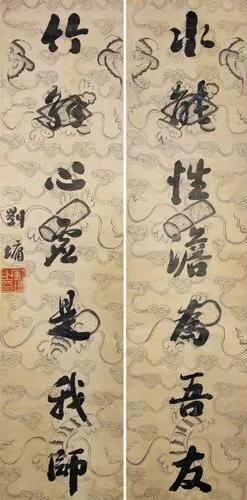 水能性澹為吾友
竹解心虛是我師
劉墉